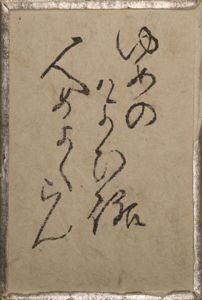 ゆめの
かよひ路
人めよくらん